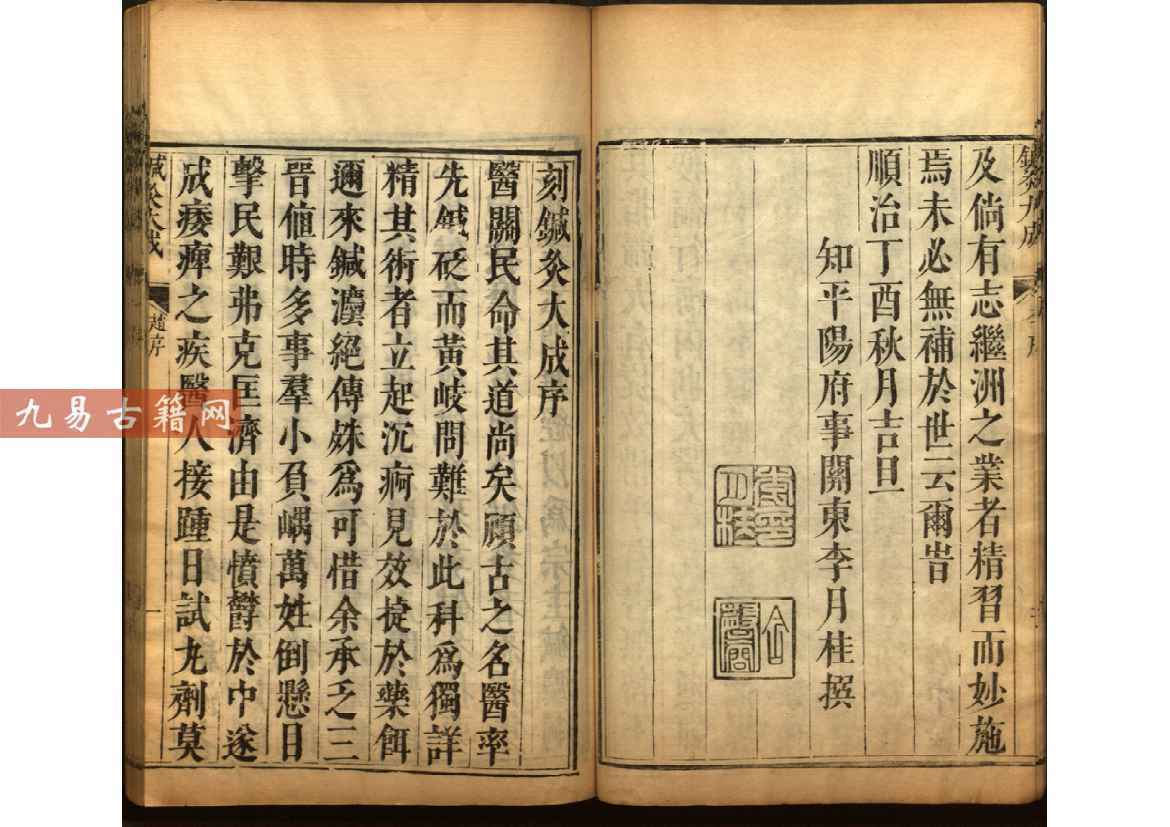 及倘有志繼洲之業者精習而妙施
焉未必無補於世云爾旹
順治丁酉秋月吉旦
知平陽府事關東李月桂撰
刻鍼灸大成序
醫關民命其道尚矣顧古之名醫率
先鍼砭而黃岐問難於此科爲獨詳
精其術者立起沉痾見效捷於藥餌
邇來鍼灋絕傳殊爲可惜余承乏三
晉値時多事羣小負嵎萬姓倒懸日
擊民艱弗克匡濟由是憤欝於中遂
成痿痺之疾醫人接踵日試丸劑莫
鍼灸大成
趙序
一
九易古籍网